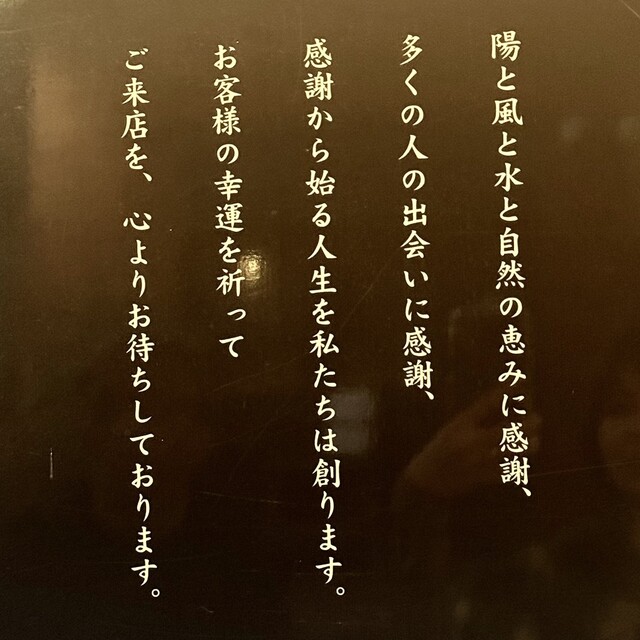 陽と風と水と自然の恵みに感謝、
多くの人の出会いに感謝、
感謝から始る人生を私たちは創ります。
お客様の幸運を祈って
ご来店を、心よりお待ちしております。